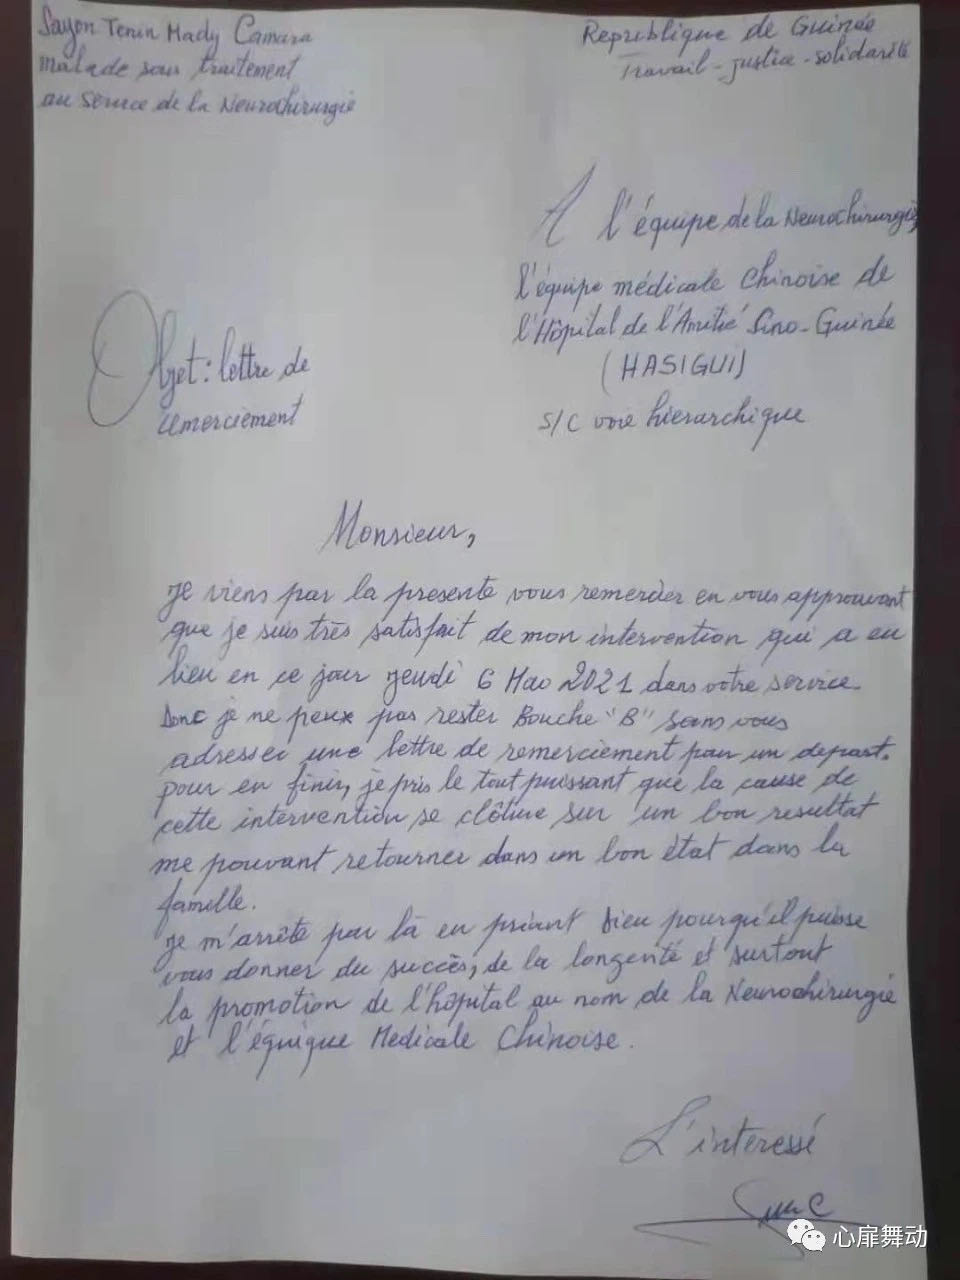 Sayon Tenin Mady Camara
malade sous traitement
au service de la Neurochirurgie
Republique de Guinée
Travail - justice - solidarité
A l'équipe de la Neurochirurgie,
l'équipe médicale Chinoise de
l'Hôpital de l'Amitié Sino-Guinée
(HASIGUI)
S/C voie hierarchique
Objet : lettre de
remerciement
Monsieur,
Je viens par la presente vous remercier en vous approuvant
que je suis très satisfait de mon intervention qui a eu
lieu en ce jour jeudi 6 Mao 2021 dans votre service.
Donc je ne peux pas rester Bouche "B" sans vous
adresser une lettre de remerciement pour un depart.
pour en finir, je pris le tout puissant que la cause de
cette intervention se clôture sur un bon resultat
me pouvant retourner dans un bon état dans la
famille.
Je m'arrête par là en priant Dieu pourqu'il puisse
vous donner du succès, de la longenté et surtout
la promotion de l'hôpital au nom de la Neurochirurgie
et l'équique Medicale Chinoise.
L'interessé
心扉舞动